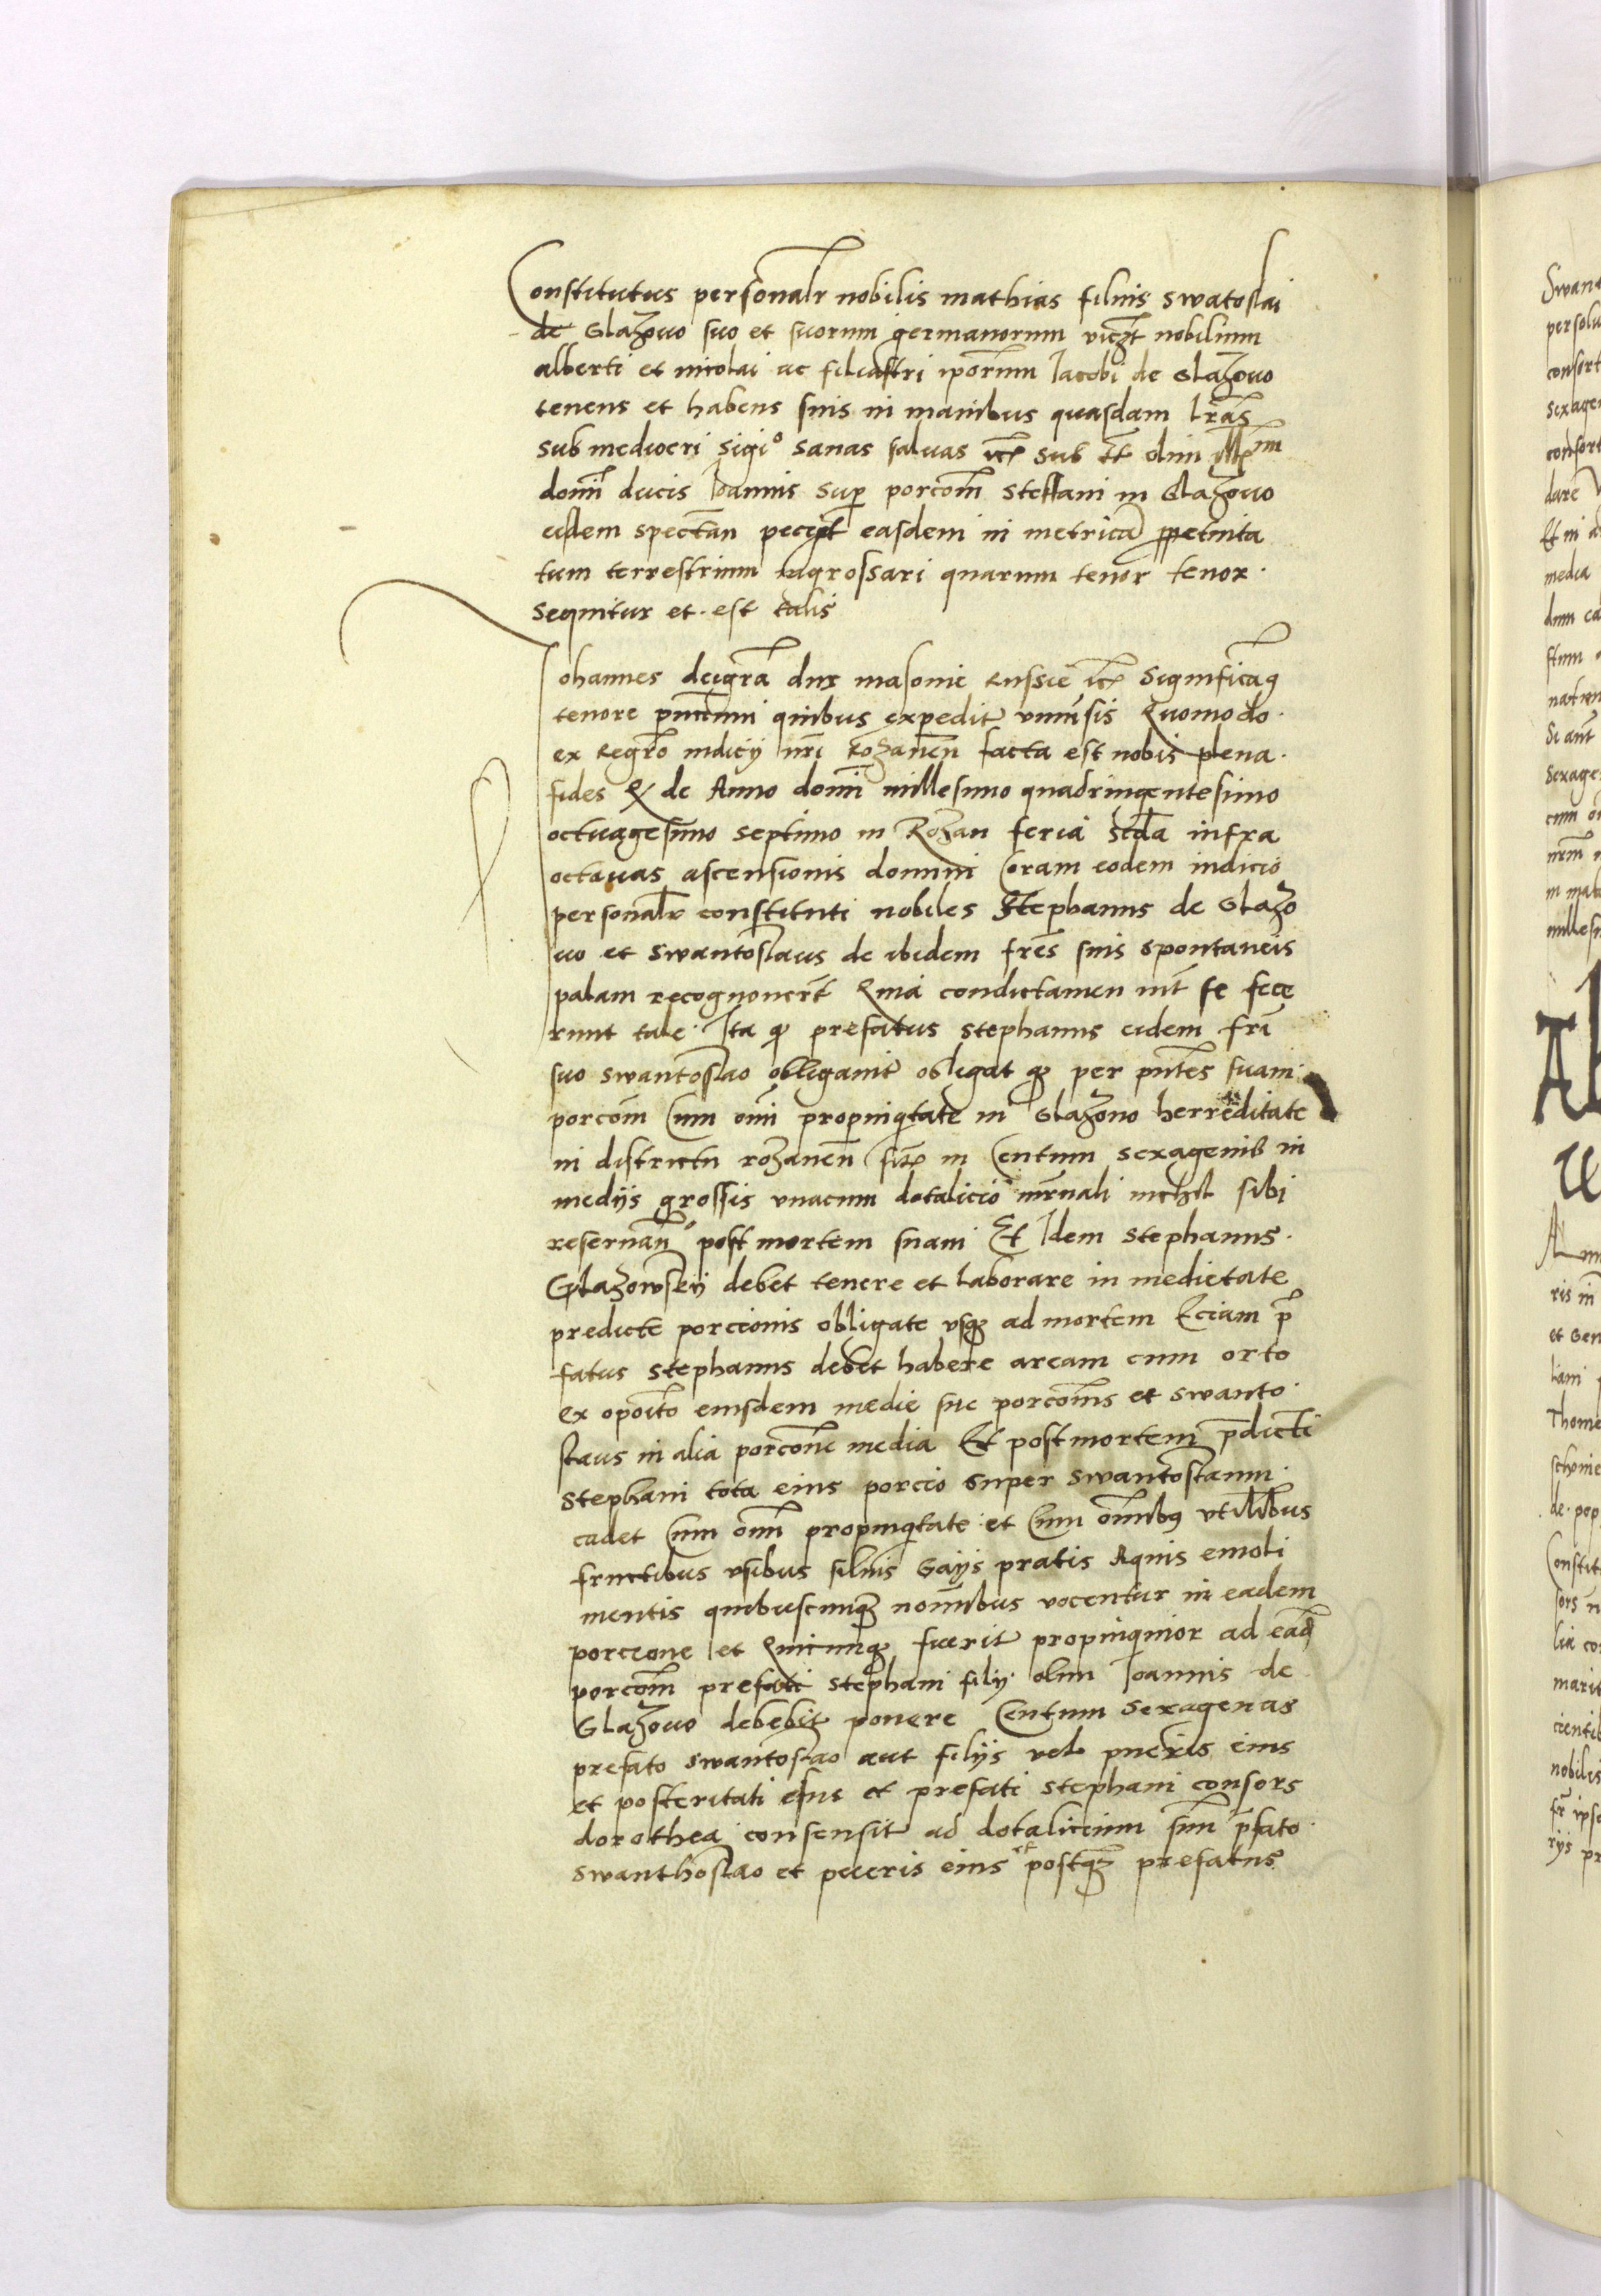 Constitutus personalr nobilis mathias filius swatoslai
de Glazouo suo et suorum germanorum viczt nobilium
alberti et nicolai ac filiastri iporum Iacobi de Glazouo
tenens et habens suis in manibus quasdam lras
sub mediocri sigio sanas saluas etc sub tt olim
domi ducis Ioannis super porcom steffani in Glazouo
eisdem spectan peciit easdem in metrica perpetuita
tum terrestrium ingrossari quarum tenor tenor
sequitur et est talis
Iohannes deigra dux masouie Russie etc Significamq
tenore pncium quibus expedit vniuersis Quomodo
ex Regro iudicij nri Rozanen facta est nobis plena
fides Q de Anno domi millesimo quadringentesimo
octuagesimo septimo in Rozan feria scda infra
octauas ascensionis domini Coram eodem iudicio
personalr constituti nobiles Stephanus de Glazo
uo et swantoslaus de ibidem fres suis spontaneis
palam recognouert Quia condictamen int se fece
runt tale Ita q prefatus stephanus eidem fri
suo swantoslao obligauit obligat q per pntes suam
porcom Cum omi propinqtate in Glazouo herreditate
in districtu rozanen sitt in Centum sexagenis in
medijs grossis vnacum dotalicio nichil sibi
reseruan post mortem suam Et Idem stephanus
Glazowsky debet tenere et laborare in medietate
predicte porcionis obligate vsq ad mortem Eciam pre
fatus stephanus debet habere aream cum orto
ex opoito eiusdem medie sue porcomis et swanto
slaus in alia porcone media Et post mortem pdicti
stephani tota eius porcio super swantoslaum
cadet Cum omi propinqtate et Cum omibus vtilibus
fructibus vsibus siluis Gays pratis Aquis emoli
mentis quibuscunq nomibus vocentur in eadem
porcione et Quicunq fuerit propinquior ad ead
porcom prefati stephani filij olim Ioannis de
Glazouo debebit ponere Centum sexagenas
prefato swantoslao aut filijs vel pueris eius
et posteritati et prefati stephani consors
dorothea consensit ad dotalicium suu pfato
swanthoslao et pueris eius et postq prefatus